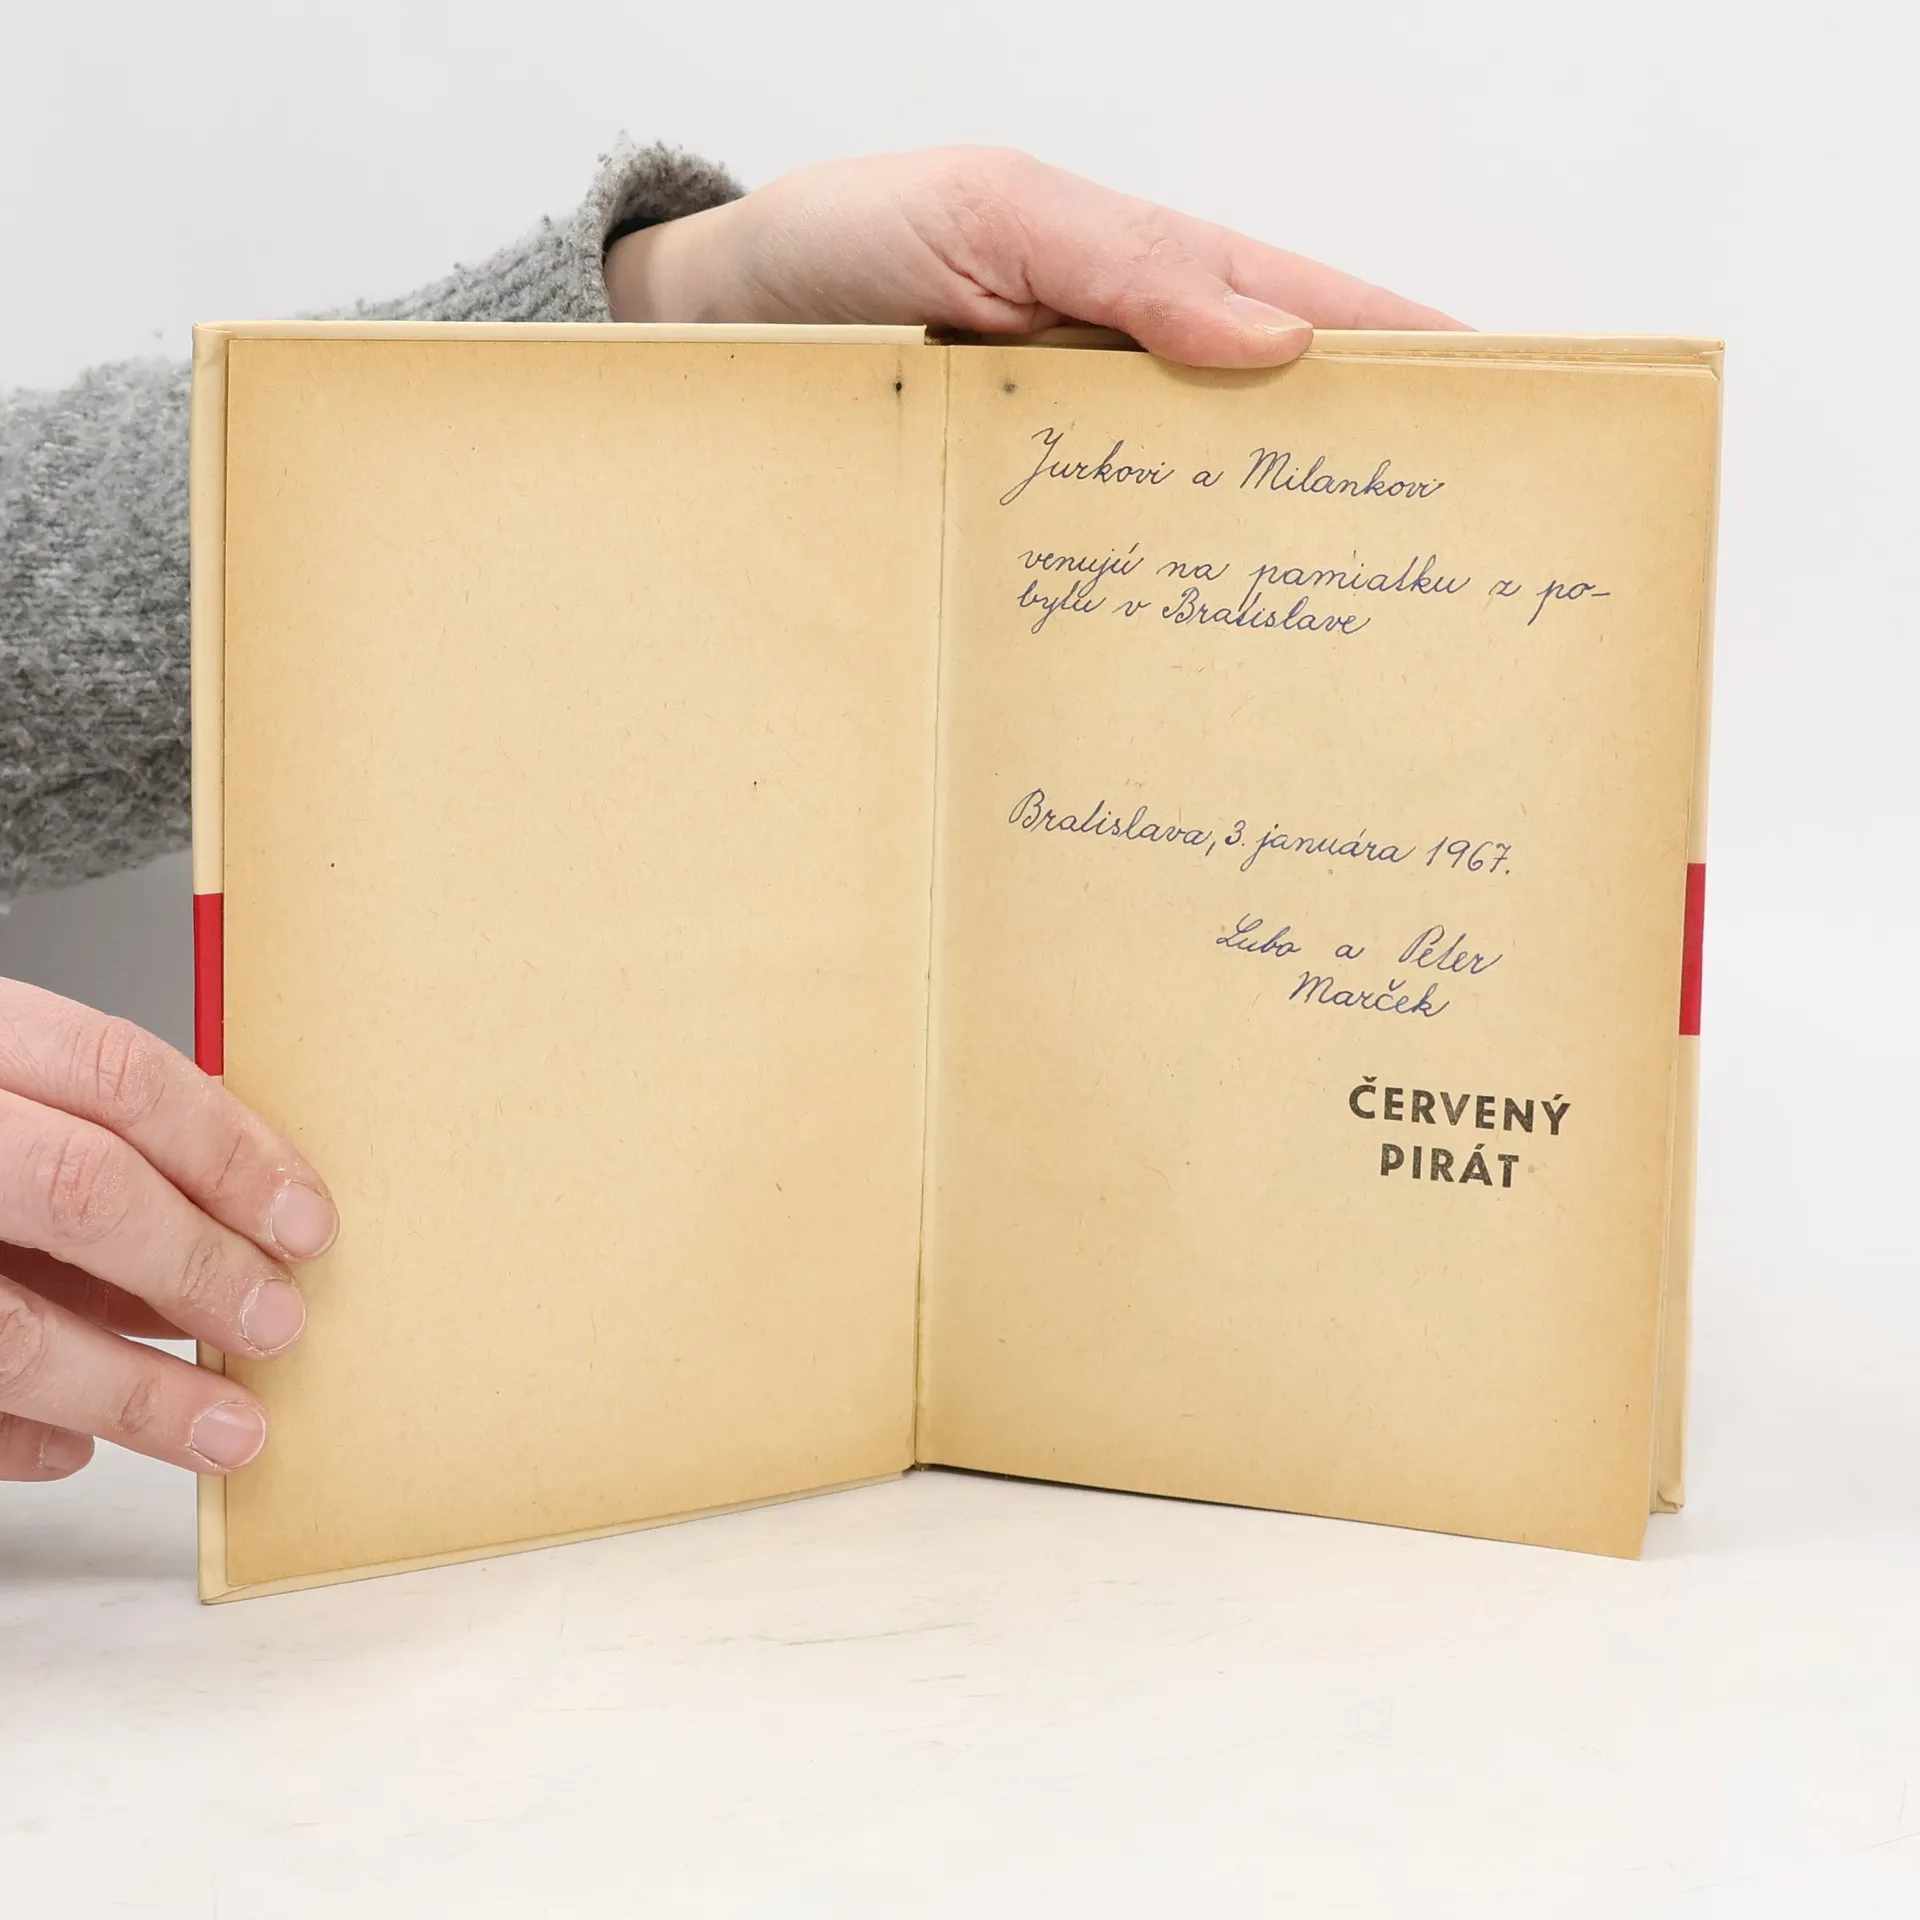 Jurkovi a Milankovi
venujú na pamiatku z po-
bytu v Bratislave
Bratislava, 3. januára 1967.
Lubo a Peter
Marček
ČERVENÝ
PIRÁT